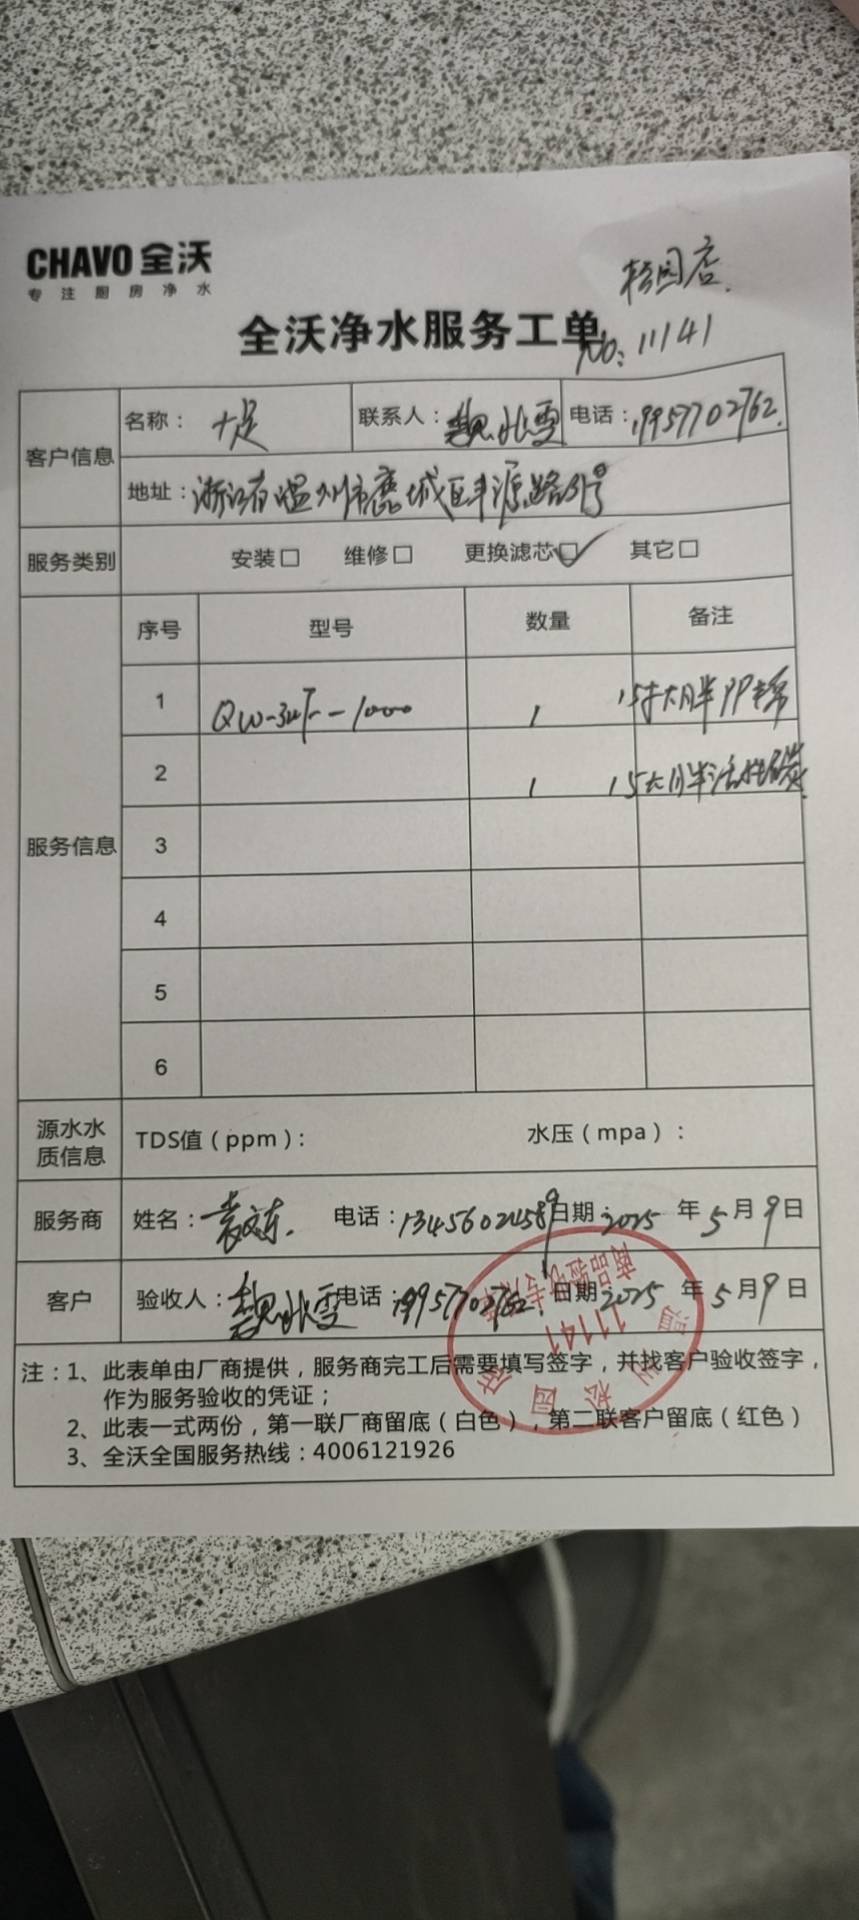 CHAVO 全沃
专注厨房净水
松园店
全沃净水服务工单
No: 11141
客户信息
名称： 十足 联系人： 魏兆雯 电话：19957702762
地址：浙江省温州市鹿城区丰源路31号
服务类别 安装□ 维修□ 更换滤芯☑ 其它□
服务信息
序号 型号 数量 备注
1 QW- -1000 1 15寸大胖PP棉
2 1 15大胖活性碳
3
4
5
6
源水水质信息 TDS值（ppm）： 水压（mpa）：
服务商 姓名： 电话：13456024589 日期：2025 年 5 月 9 日
客户 验收人： 电话：19957702762 日期2025 年 5 月 9 日
商品验收专用章
11141
温州松园店
注：1、此表单由厂商提供，服务商完工后需要填写签字，并找客户验收签字，
作为服务验收的凭证；
2、此表一式两份，第一联厂商留底（白色），第二联客户留底（红色）
3、全沃全国服务热线：4006121926